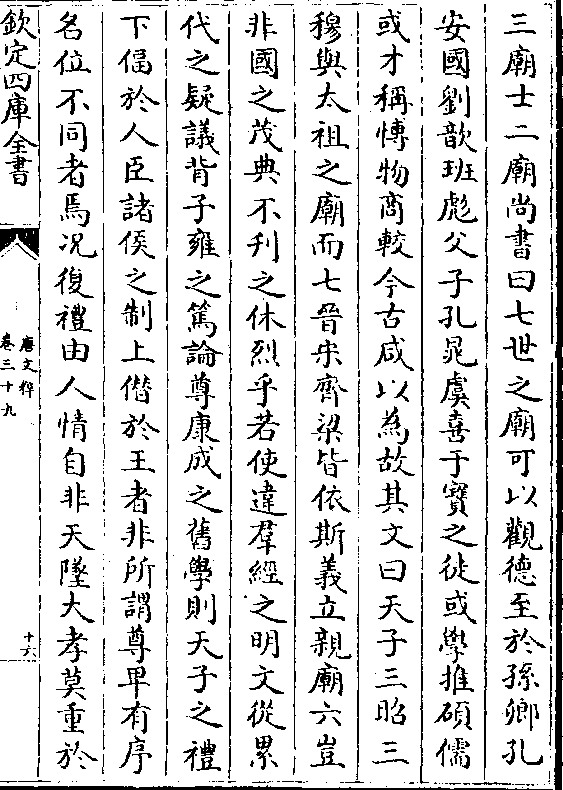 三廟士二廟尚書曰七世之廟可以觀德至於孫卿孔
安國劉歆班彪父子孔晁虞喜于寳之徒或學推碩儒
或才稱愽物商較今古咸以為故其文曰天子三昭三
穆與太祖之廟而七晉宋齊梁皆依斯義立親廟六豈
非國之茂典不刋之休烈乎若使違羣經之明文從累
代之疑議背子雍之篤論尊康成之舊學則天子之禮
下偪於人臣諸侯之制上僭於王者非所謂尊卑有序
名位不同者焉况復禮由人情自非天墜大孝莫重於
欽定四庫全書
唐文粹
卷三十九
十六